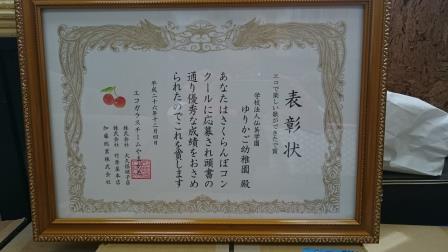 表彰状
エコで楽しい歌ができたで賞
学校法人仙英学園
ゆりかご幼稚園 殿
あなたはさくらんぼコン
クールに応募され頭書の
通り優秀な成績をおさめ
られたのでこれを賞します
平成二十六年十二月四日
エコガラスチームやまがた
株式会社 竹原屋本店
加藤総業株式会社